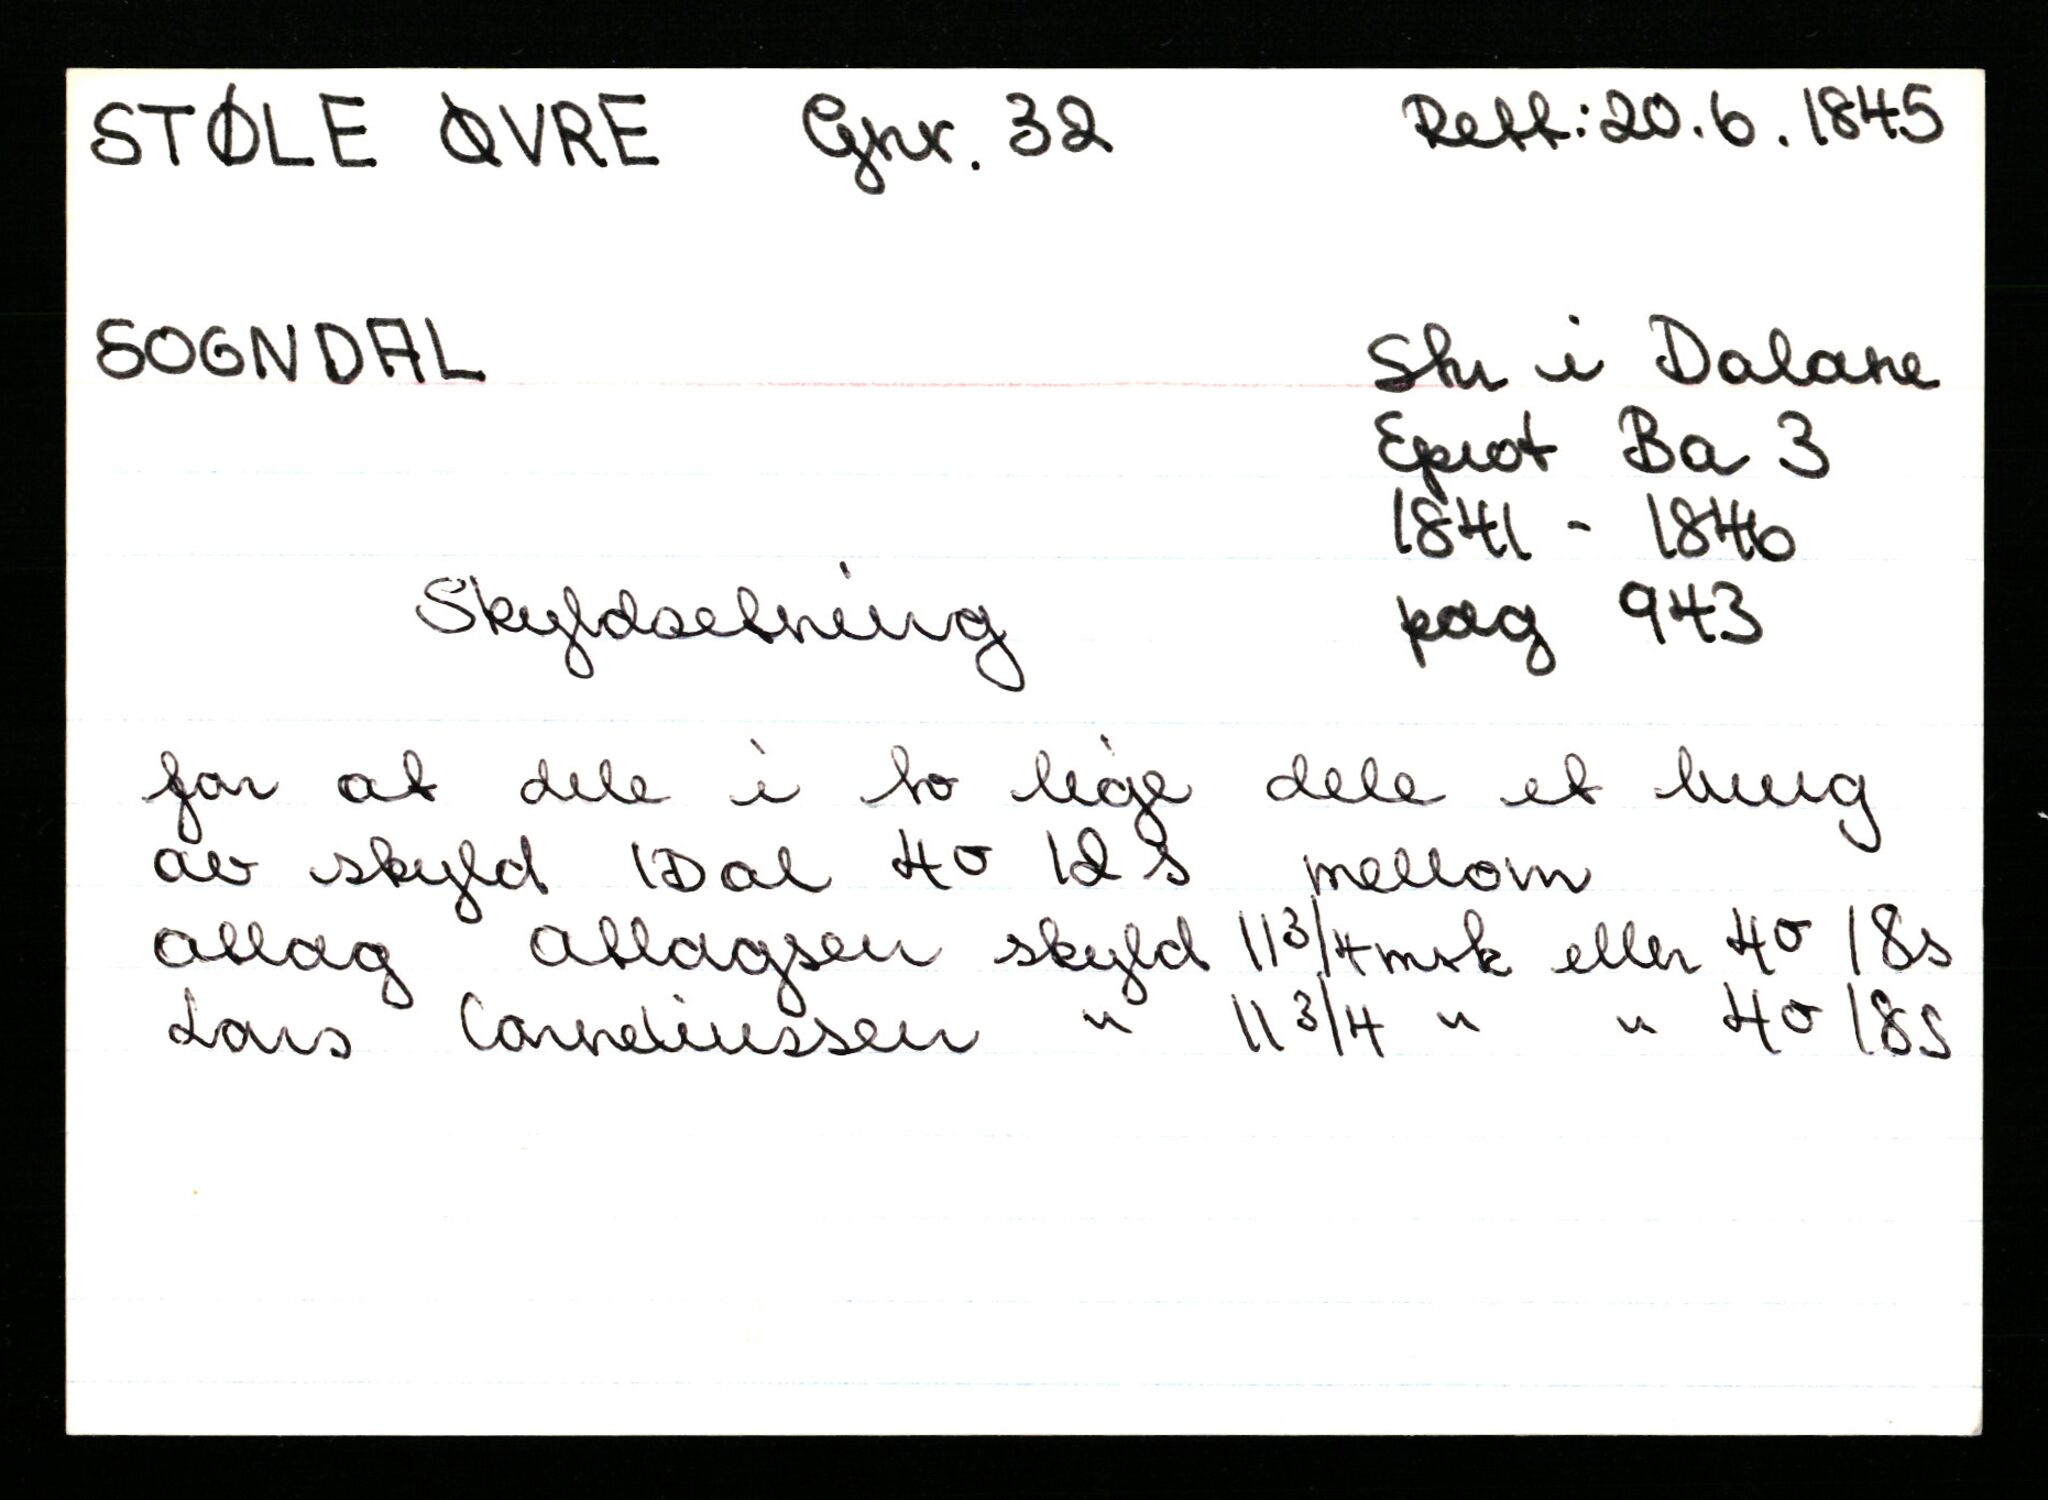 STØLE ØVRE Gnr. 32 Rett: 20.6.1845
SOGNDAL Skr i Dalane
Eprot Ba 3
1841 - 1846
Skyldsetning pag 943
for at dele i to lige dele et brug
av skyld 1 Dal 4 o 12 s mellom
Atlag Atlagsen skyld 11 3/4 mrk eller 4 o 18 s
Lars Corneliussen " 11 3/4 " " 4 o 18 s